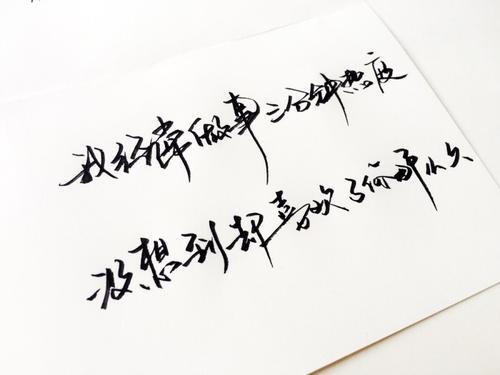 我经常做事三分钟热度
没想到却喜欢了你那么久